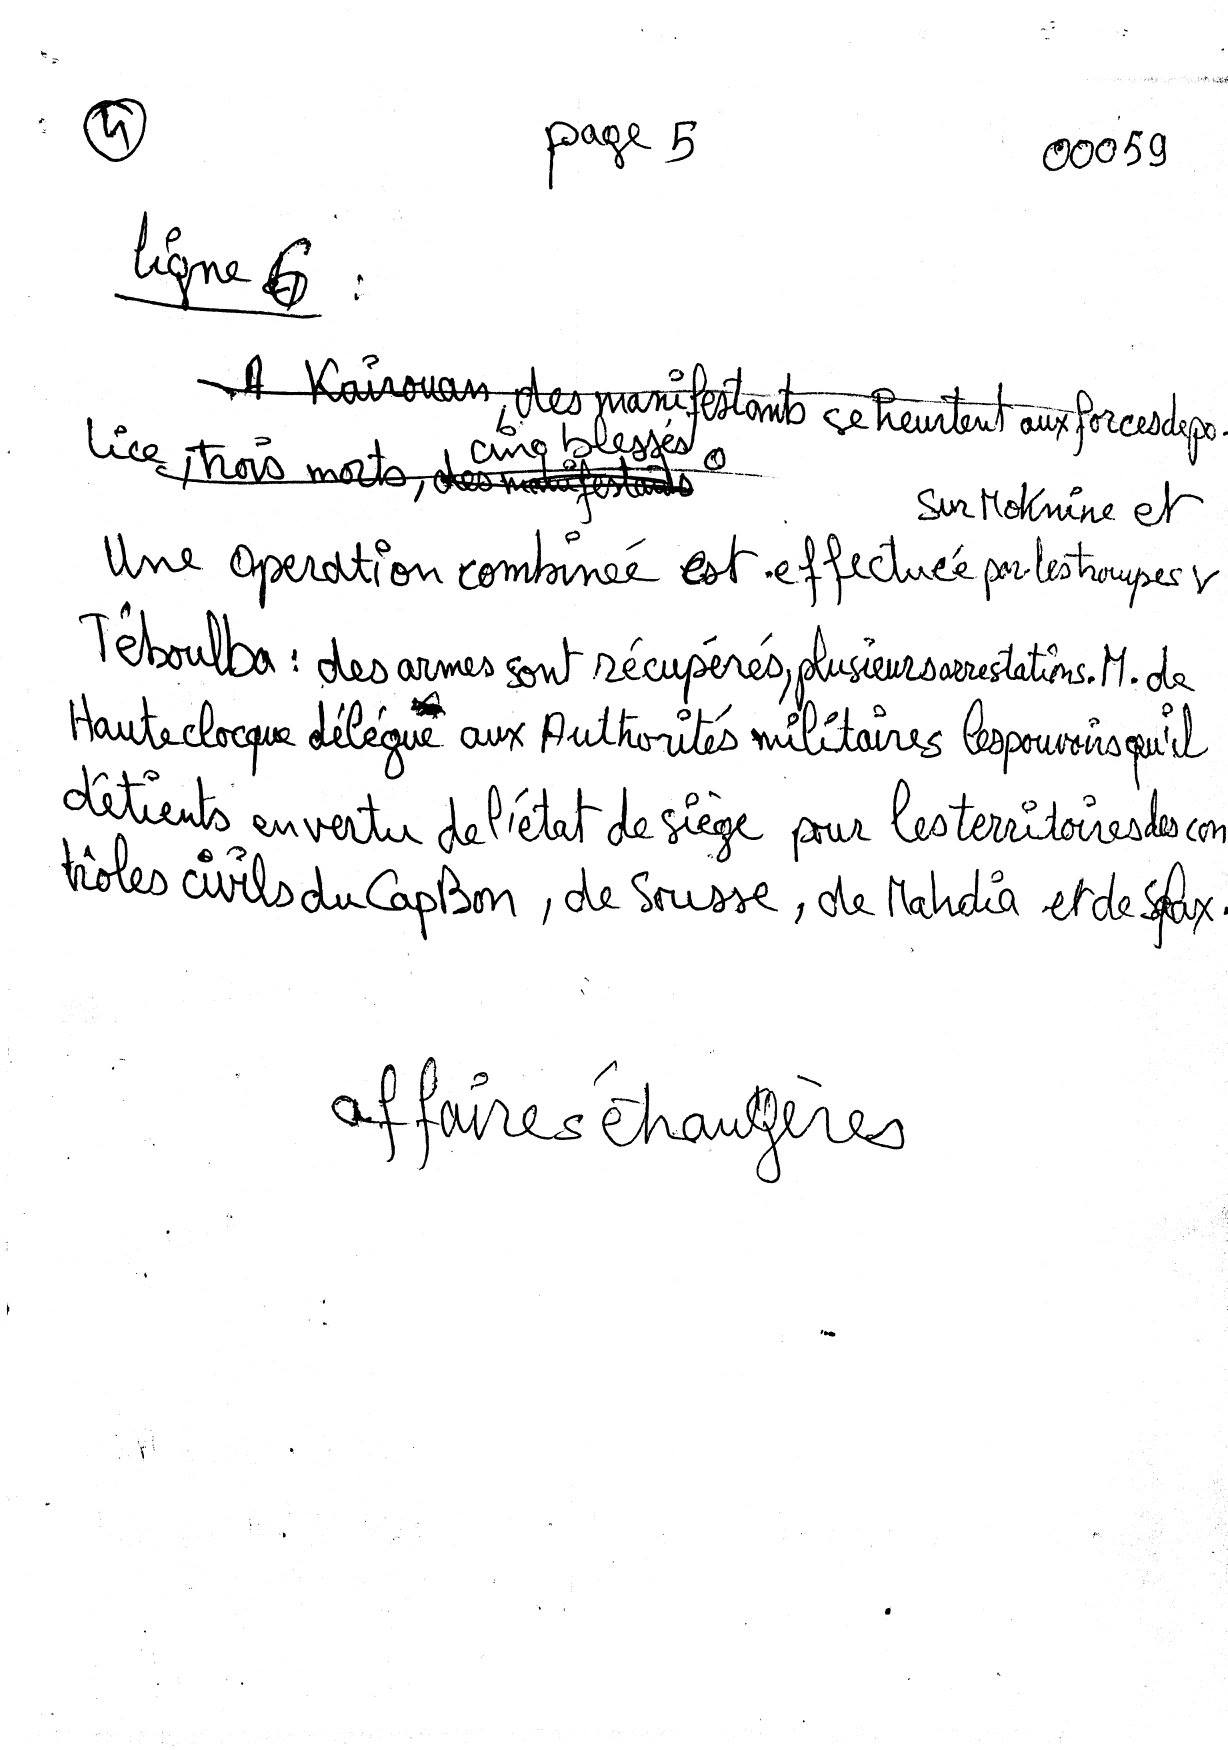 4 page 5 00059
ligne 6 :
A Kairouan, des manifestants se heurtent aux forces de po-
lice, trois morts, des manifestants cinq blessés.
sur Moknine et
Une operation combineé est effectueé par les troupes v
Téboulba : des armes sont récupérés, plusieurs arrestations. M. de
Hauteclocque délégue aux Authorités militaires les pouvoirs qu'il
détients en vertu de l'état de siège pour les territoires des con
trôles civils du Cap Bon, de Sousse, de Mahdia et de Sfax.
affaires étrangères